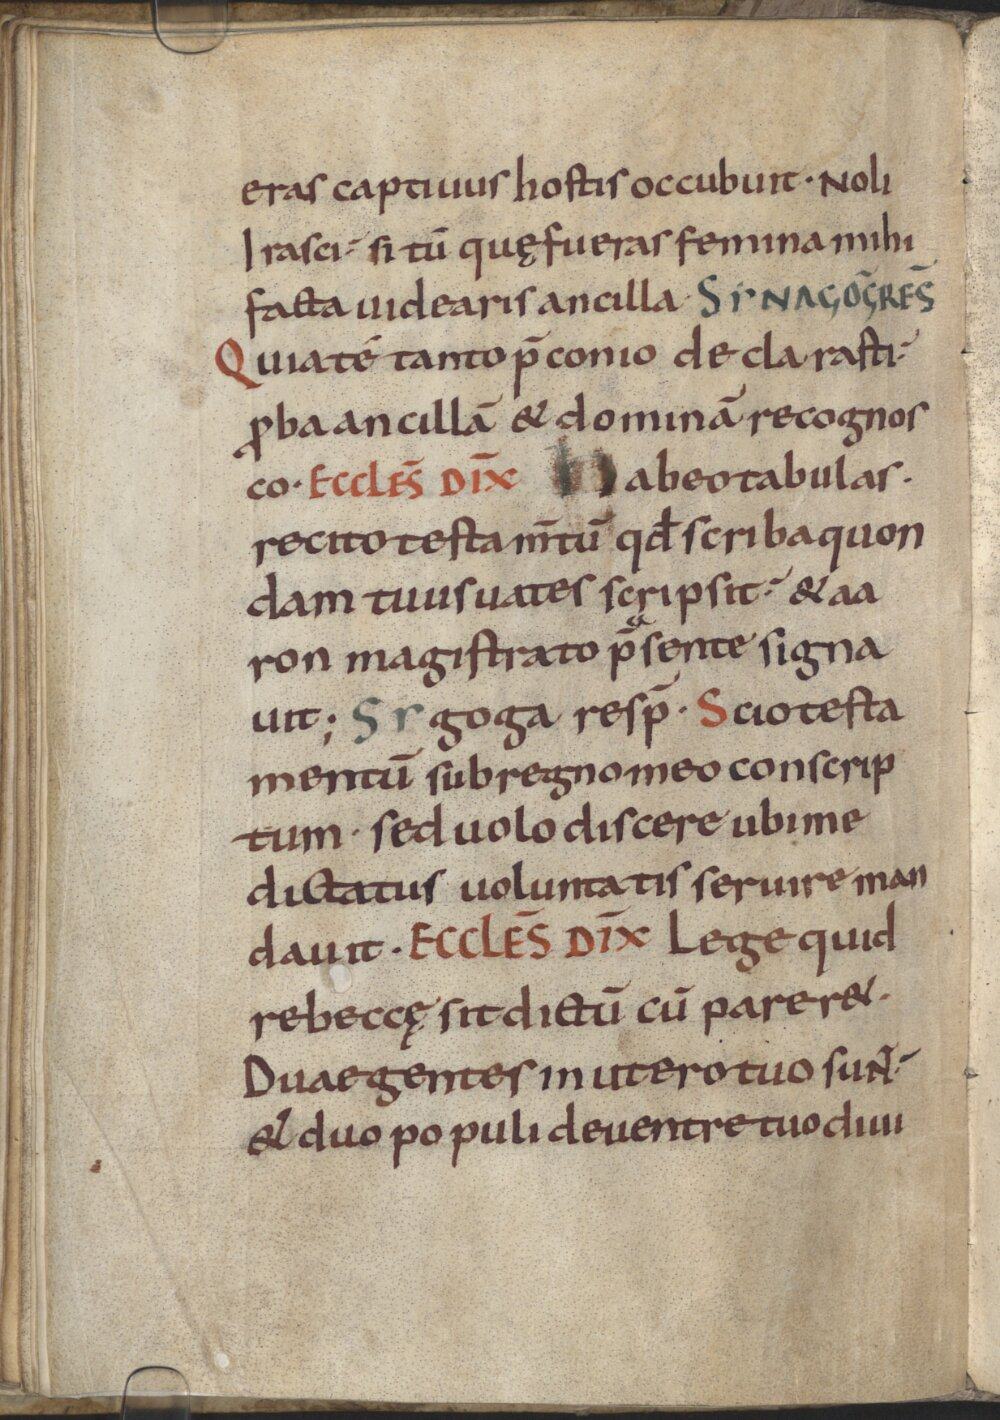 eras captiuus hostis occubuit · Noli
Irasci · si tū quę fueras femina mihi
facta uidearis ancilla · SYNAGŌG RES̄
Quia té tanto p̄conio declarasti ·
ꝓba ancillā & dominā recognos
co · ECCLES̄ DĪX Habeo tabulas ·
recito testam̄tū qđ scriba quon
dam tuus uates scripsit · & aa
ron magistrato p̄sente signa
uit; Sygoga resp̄ · Scio testa
mentū sub regno meo conscrip
tum · sed uolo discere ubi me
dictatus uoluntatis seruire man
dauit · ECCLES̄ DĪX Lege quid
rebeccę sit dictū cū parer& ·
Duae gentes in utero tuo suN̄ ·
& duo populi de uentre tuo diui